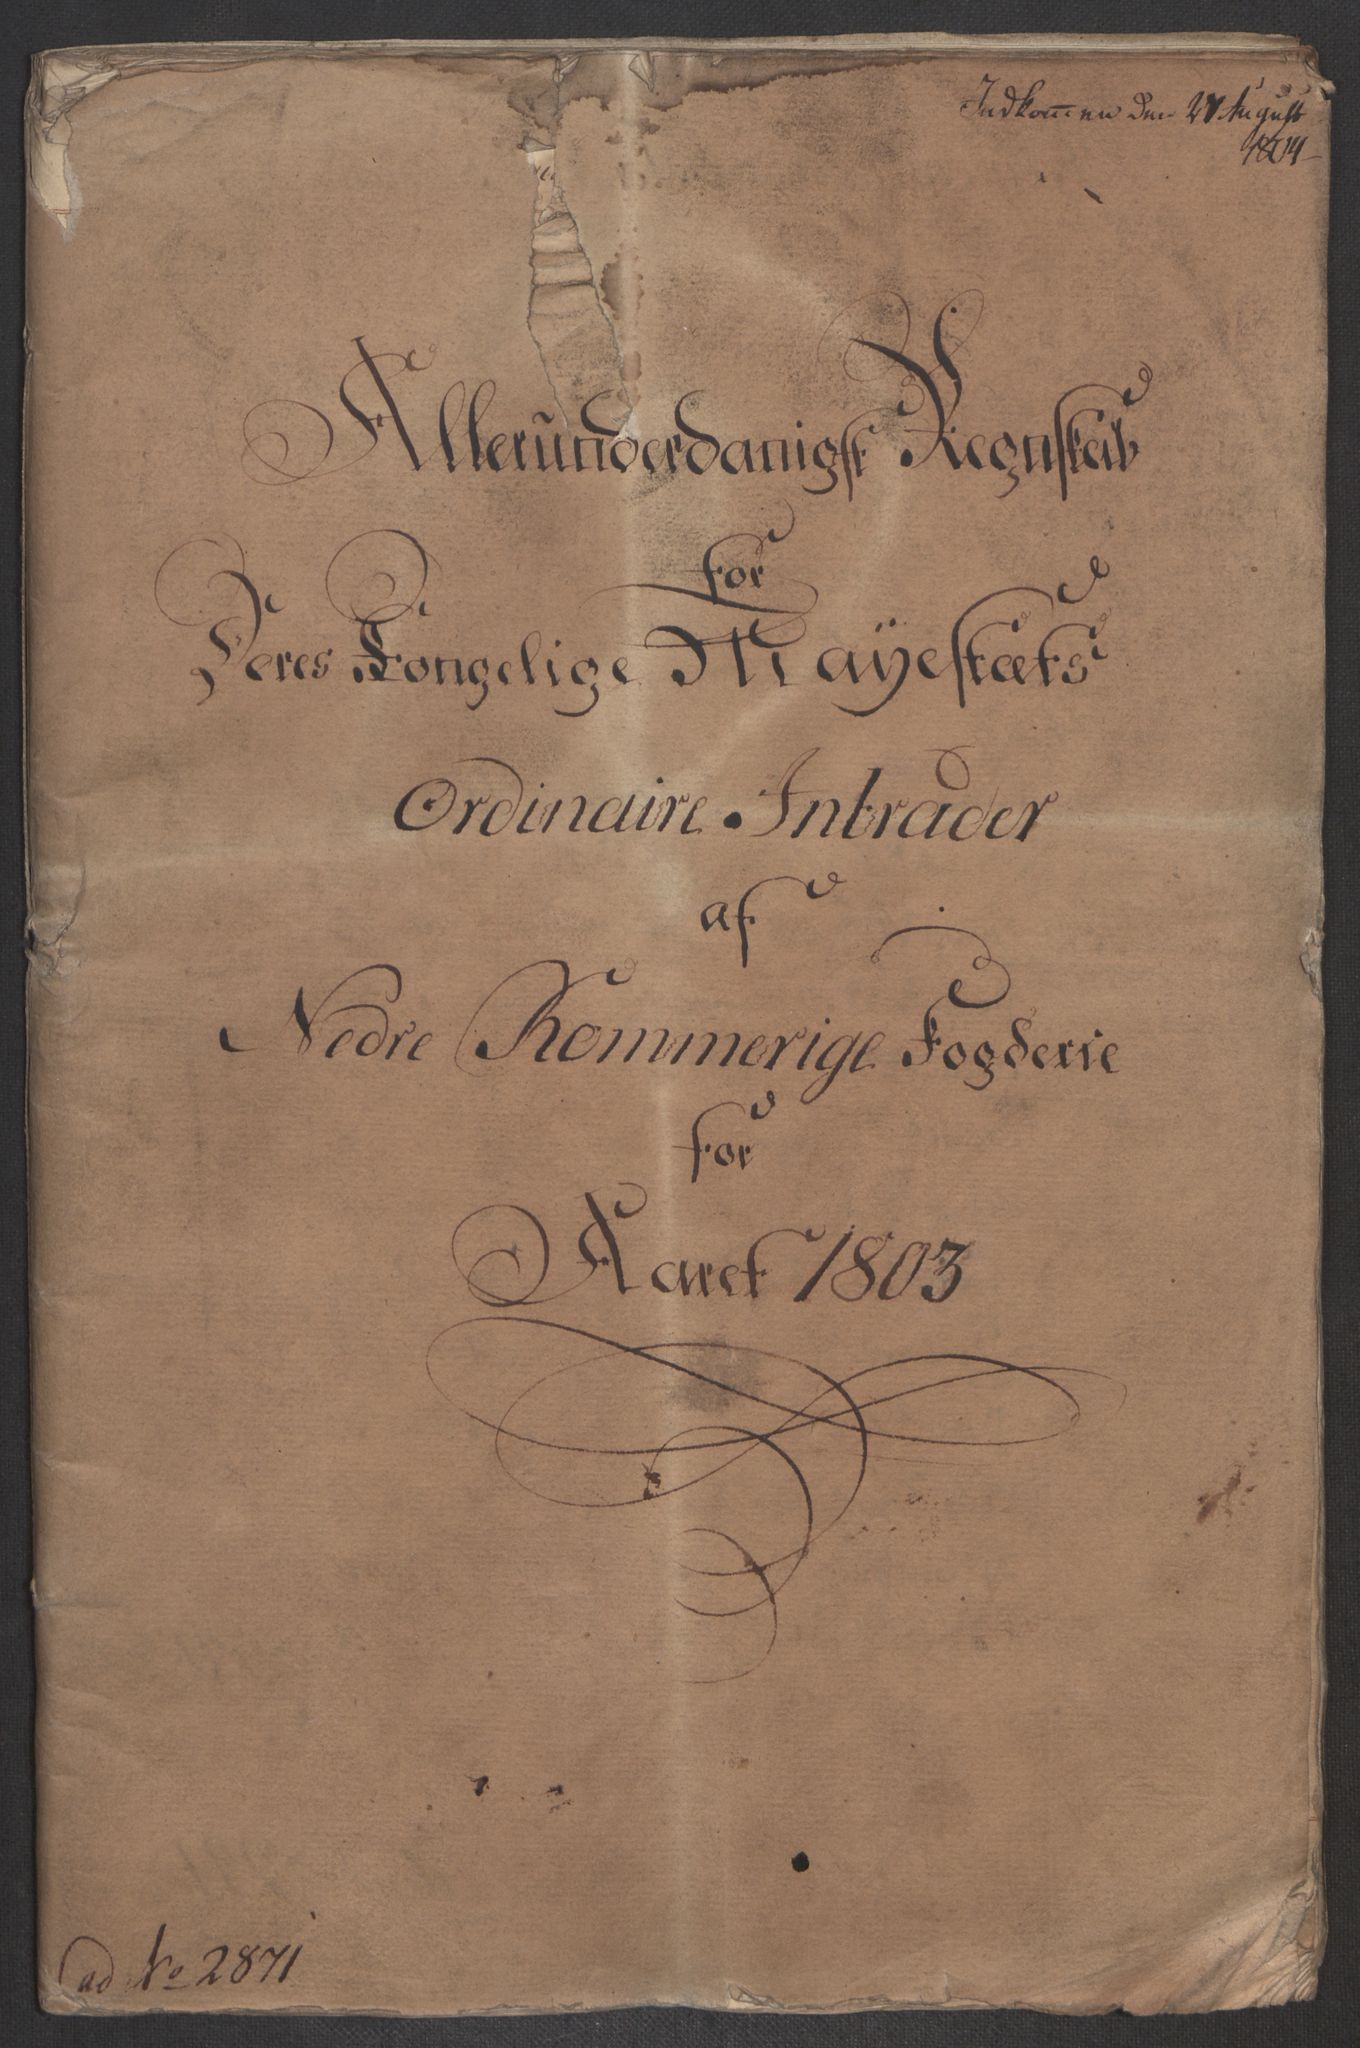 Indkommen den 27 August
1804
Allerunderdanigst Regnskab
for
Deres Kongelige Mayestæts
Ordinaire Intrader
af
Nedre Rommerige Fogderie
for
Aaret 1803
ad No 2871